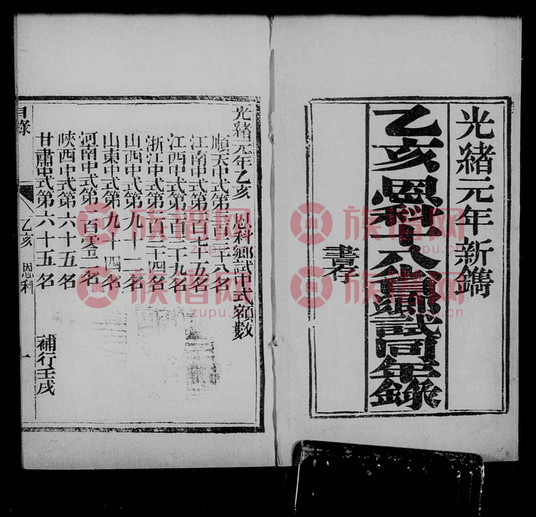 光緒元年新鐫
乙亥恩科十八省鄉試同年錄
書存
光緒元年乙亥 恩科鄉試中式額數
順天中式第二百 十六名
江南中式第 百 十五名
江西中式第一百二十九名
浙江中式第 百三十四名
山西中式第九十一名
山東中式第九十四名
河南中式第一百零一名
陝西中式第六十五名
甘肅中式第六十五名 補行壬戌
目錄 乙亥 恩科 一
族谱网
zupu.cn